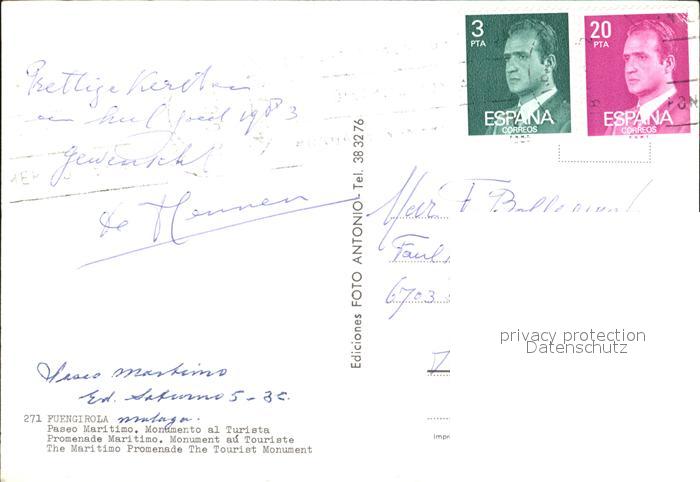 3
PTA
ESPAÑA
CORREOS
F.N.M.T.
20
PTA
ESPAÑA
CORREOS
F.N.M.T.
Prettige Kerstdagen
en heel goed 1983
gewenscht
de Mennen
Paseo Maritimo
Ed. Saturno 5-3C.
271 FUENGIROLA Malaga.
Paseo Marítimo. Monumento al Turista
Promenade Maritimo. Monument au Touriste
The Maritimo Promenade The Tourist Monument
Ediciones FOTO ANTONIO - Tel. 383276
F
6703
Impr
privacy protection
Datenschutz